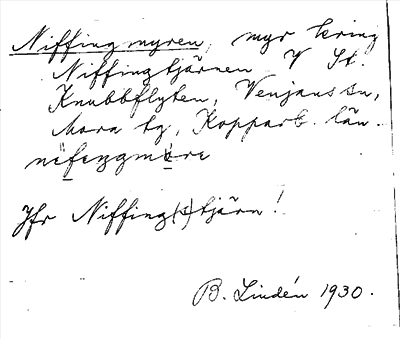 Niffingmyren, myr kring
Niffingtjärnen V St.
Knubbflyten, Venjans sn,
Mora tg, Kopparb. län.
Jfr Niffing(s)tjärn!
B. Lindén 1930.